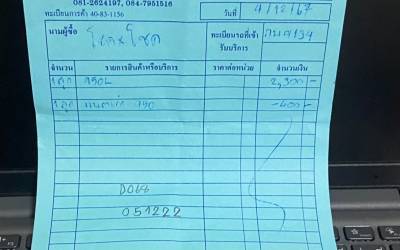 081-2624197, 084-7951516
ทะเบียนการค้า 40-83-1156
วันที่ 4/12/67
นามผู้ซื้อ
ทะเบียนรถที่เข้ารับบริการ
จำนวน รายการสินค้าหรือบริการ ราคาต่อหน่วย จำนวนเงิน
1 ลูก 150L 2,300 -
1 ลูก 150 -400 -
DOLL
051222